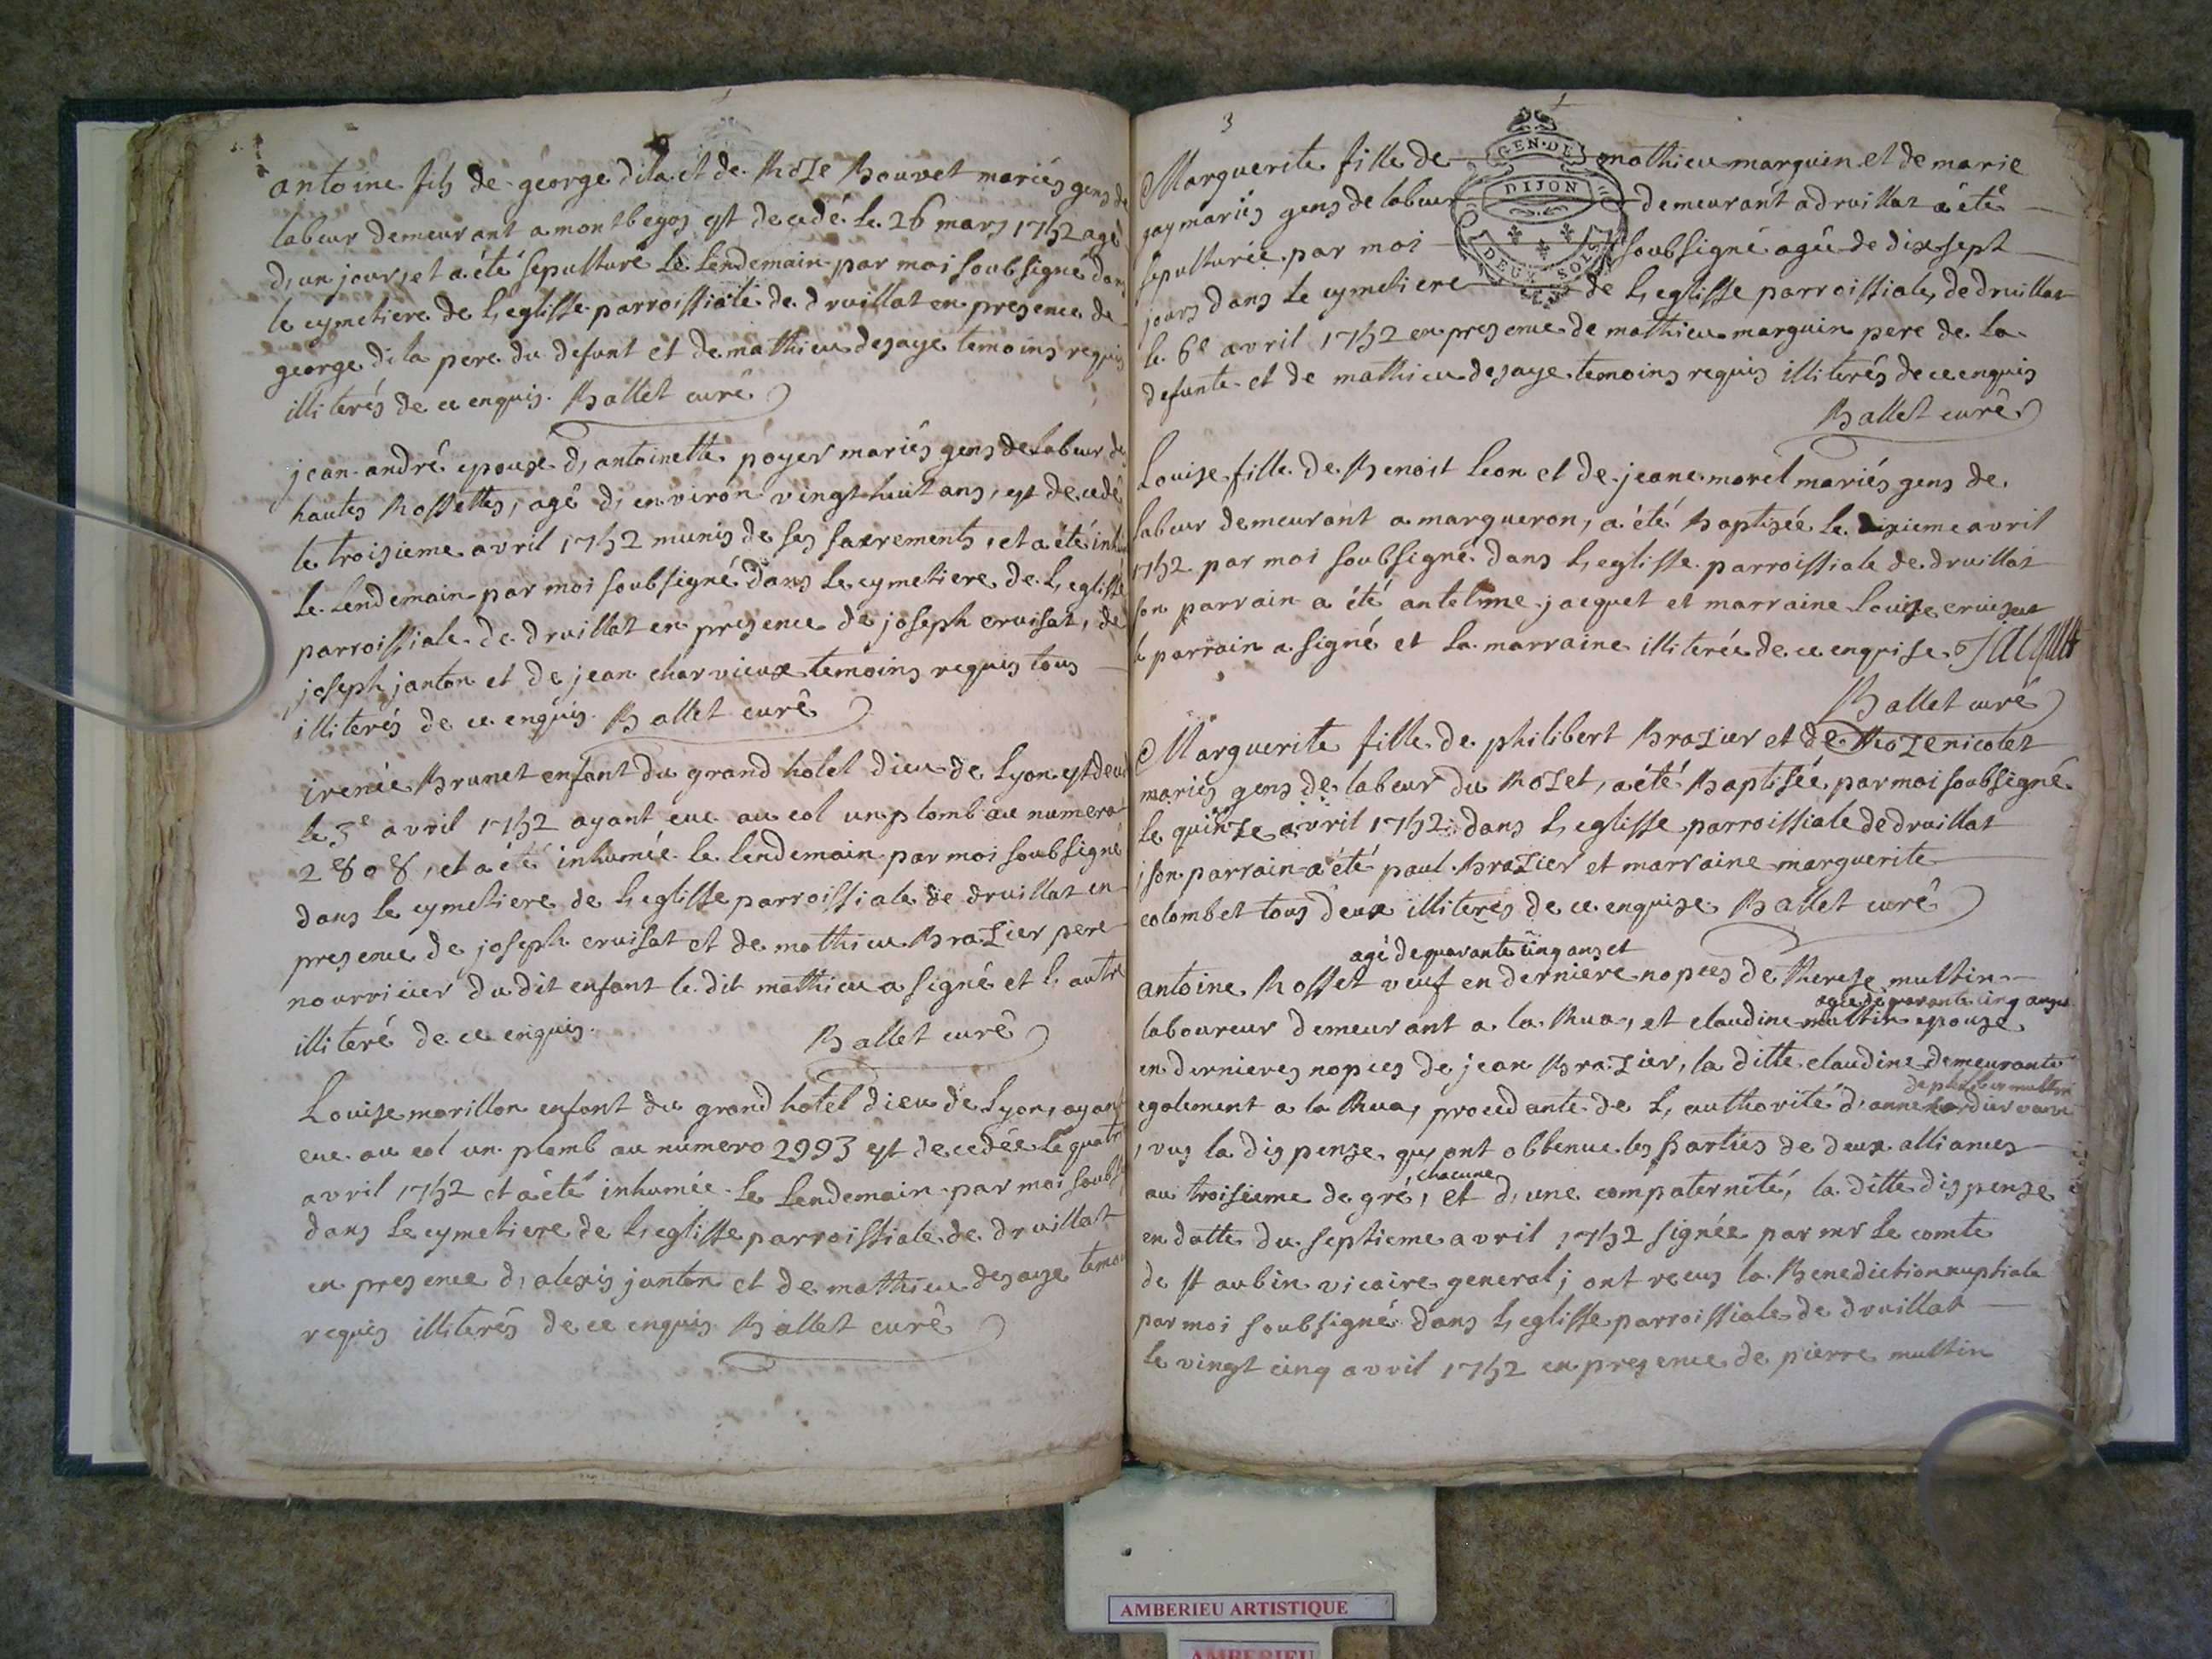 antoine fils de george dila et de Roze Bouvet mariés gens de
labeur demeurant a montbegos est decedé le 26 mars 1752 agé
d'un jour, et a été sepulturé le lendemain par moi soubsigné dans
le cymetiere de l'eglisse parroissiale de druillat en presence de
george dila pere du defunt et de mathieu desaye temoins requis
illiterés de ce enquis. Ballet curé
jean andré epouse d'antoinette poyer mariés gens de labeur de
hautes Rossettes, agé d'environ vingt huit ans, est decedé
le troisieme avril 1752 munis de ses sacrements, et a été inhu
le lendemain par moi soubsigné dans le cymetiere de l'eglisse
parroissiale de druillat en presence de joseph cruisat, de
joseph janton et de jean charvieux temoins requis tous
illiterés de ce enquis. Ballet curé
irenée Brunet enfant du grand hotel dieu de Lyon est deced
le 3e avril 1752 ayant eue au col un plomb au numero
2808, et a été inhumée le lendemain par moi soubsigné
dans le cymetiere de l'eglisse parroissiale de druillat en
presence de joseph cruisat et de mathieu Brazier pere
nourricier du dit enfant le dit mathieu a signé et l'autre
illiteré de ce enquis. Ballet curé
Louise morillon enfant du grand hotel dieu de Lyon, ayant
eue au col un plomb au numero 2993 est decedée le quatr
avril 1752 et a été inhumée le lendemain par moi soubs
dans le cymetiere de l'eglisse parroissiale de druillat
en presence d'alexis janton et de mathieu desaye temoi
requis illiterés de ce enquis Ballet curé
3
GEN. DE
DIJON
DEUX SOLS
Marguerite fille de mathieu marguin et de marie
gay mariés gens de labeur demeurant a druillat a été
sepulturée par moi soubsigné agée de dix sept
jours dans le cymetiere de l'eglisse parroissiale de druillat
le 6e avril 1752 en presence de mathieu marguin pere de la
defunte et de mathieu desaye temoins requis illiterés de ce enquis
Ballet curé
Louise fille de Benoit Leon et de jeane morel mariés gens de
labeur demeurant a margueron, a été Baptizée le dixieme avril
1752 par moi soubsigné dans l'eglisse parroissiale de druillat
son parrain a été antelme jacquet et marraine Louise cruisat
le parrain a signé et la marraine illiterée de ce enquise Jacquet
Ballet curé
Marguerite fille de philibert Brazier et de Roze nicolet
mariés gens de labeur du Rozet, a été Baptisée par moi soubsigné
le quinze avril 1752 dans l'eglisse parroissiale de druillat
son parrain a été paul Brazier et marraine marguerite
colombet tous deux illiterés de ce enquise Ballet curé
agé de quarante cinq ans et
antoine Rosset veuf en derniere nopces de Therese multin
agée de quarante cinq ans
laboureur demeurant a la Rua, et claudine multin epouse
en dernieres nopces de jean Brazier, la ditte claudine demeurante
egalement a la Rua, procedante de l'authorité d'anne veuve
vus la dispense qu'ont obtenue les parties de deux alliances
chacune
au troisieme degré, et d'une compaternité, la ditte dispense
en datte du septieme avril 1752 signée par mr le comte
de st aubin vicaire general; ont receus la Benediction nuptiale
par moi soubsigné dans l'eglisse parroissiale de druillat
le vingt cinq avril 1752 en presence de pierre multin
AMBERIEU ARTISTIQUE
AMBERIEU